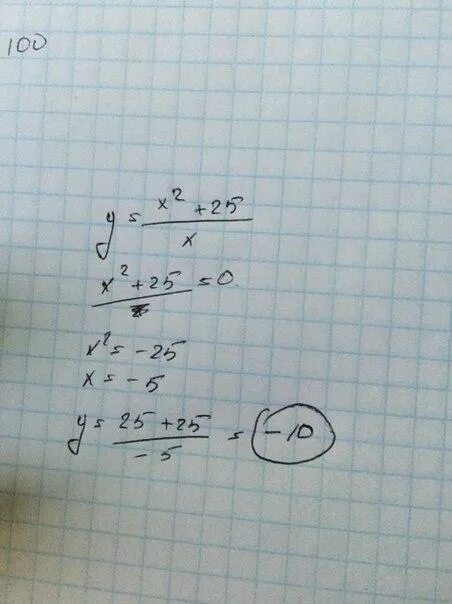 100
y = (x² + 25) / x
(x² + 25) / = 0
x² = -25
x = -5
y = (25 + 25) / -5 = -10